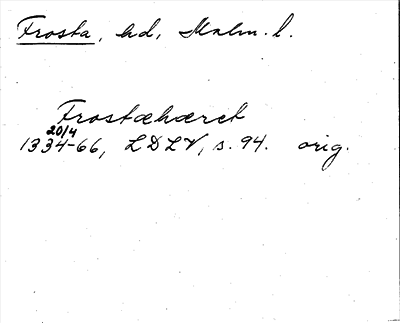 Frosta, hd, Malm. l.
Frostæhæret
20/4
1334-66, LDLV, s. 94. orig.